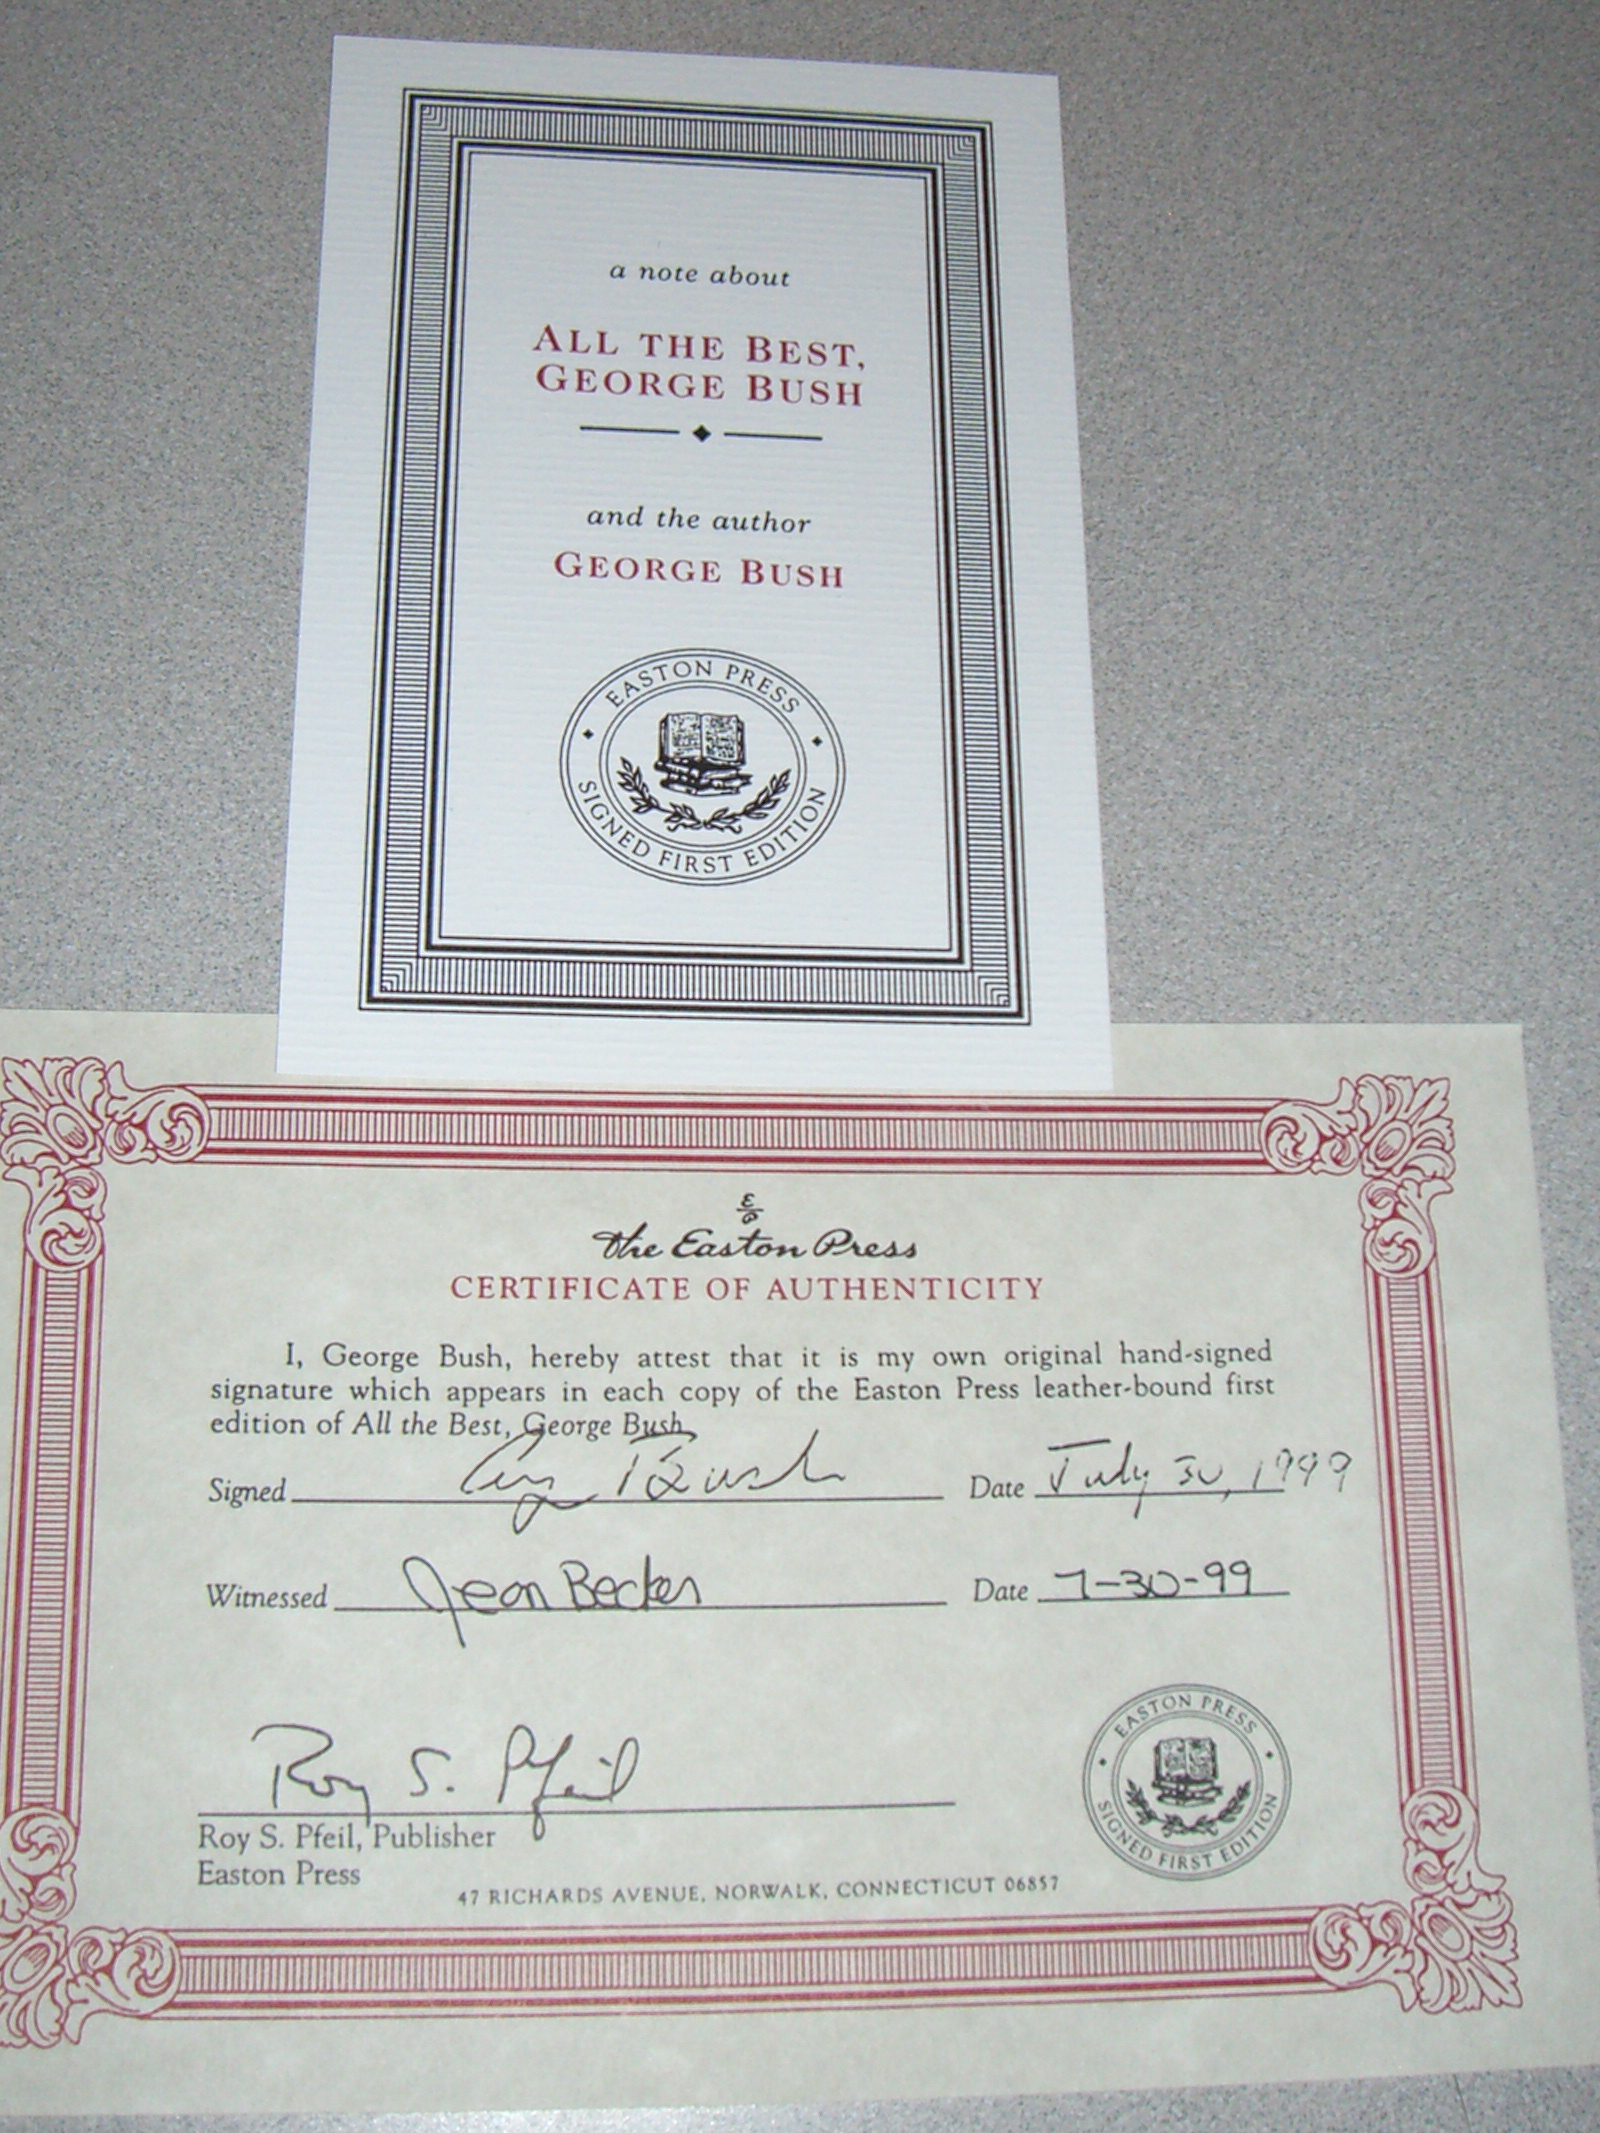 a note about
ALL THE BEST,
GEORGE BUSH
and the author
GEORGE BUSH
EASTON PRESS
SIGNED FIRST EDITION
E/P
The Easton Press
CERTIFICATE OF AUTHENTICITY
I, George Bush, hereby attest that it is my own original hand-signed
signature which appears in each copy of the Easton Press leather-bound first
edition of All the Best, George Bush.
Signed G Bush Date July 30, 1999
Witnessed Jean Becker Date 7-30-99
Roy S. Pfeil
Roy S. Pfeil, Publisher
Easton Press
47 RICHARDS AVENUE, NORWALK, CONNECTICUT 06857
EASTON PRESS
SIGNED FIRST EDITION